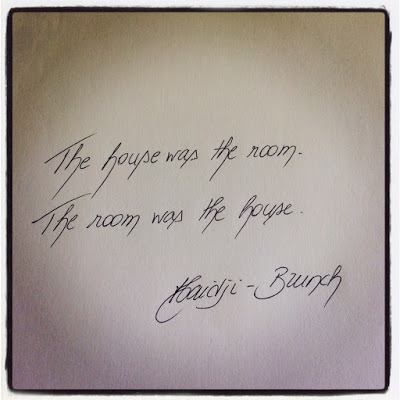 The house was the room.
The room was the house.
Haidji - Brunch